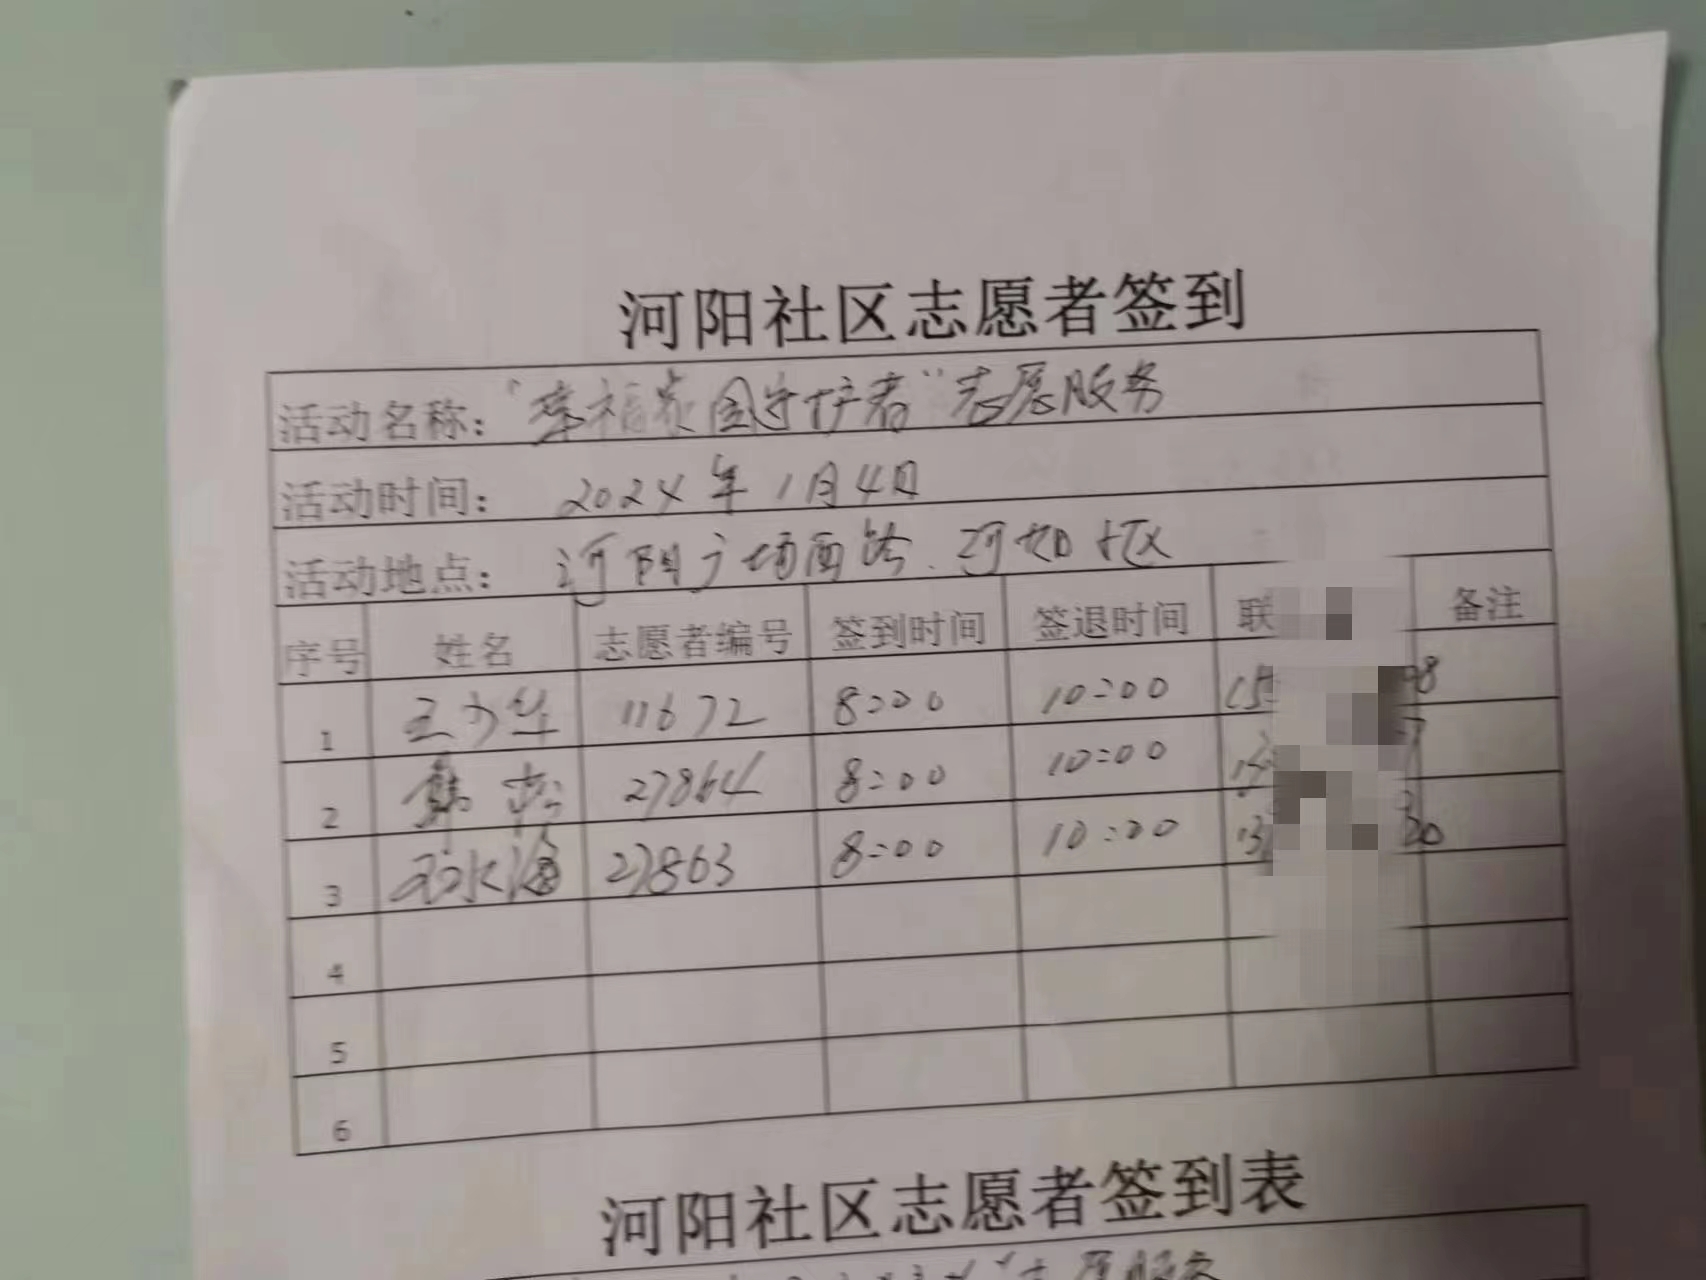 河阳社区志愿者签到
活动名称：“幸福家园守护者”志愿服务
活动时间： 2024年1月4日
活动地点： 河阳广场西路、河阳社区
序号 姓名 志愿者编号 签到时间 签退时间 联 备注
1 11672 8:00 10:00 98
2 韩 27864 8:00 10:00
3 27863 8:00 10:00 13
4
5
6
河阳社区志愿者签到表
志愿服务